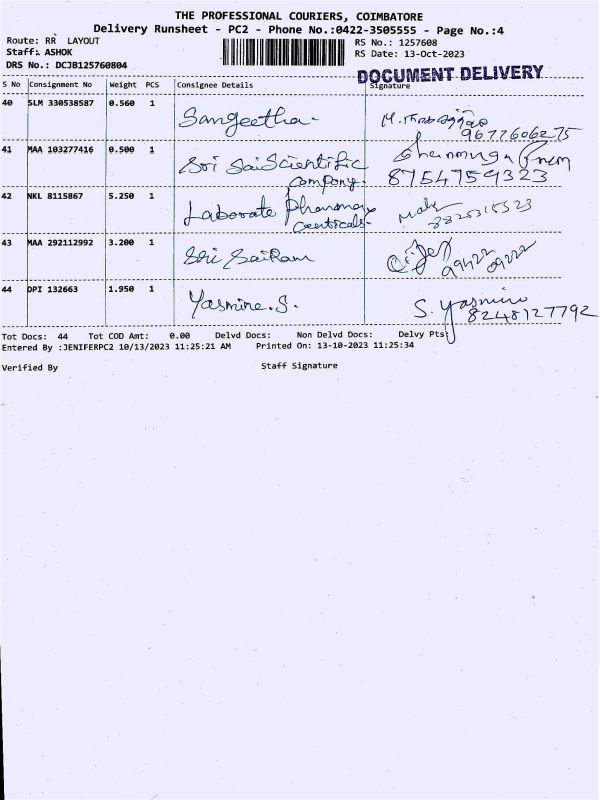 THE PROFESSIONAL COURIERS, COIMBATORE
Delivery Runsheet - PC2 - Phone No.:0422-3505555 - Page No.:4
Route: RR LAYOUT
RS No.: 1257608
Staff: ASHOK
RS Date: 13-Oct-2023
DRS No.: DCJB125760804
DOCUMENT DELIVERY
S No Consignment No Weight PCS Consignee Details Signature
40 SLM 330538587 0.560 1 Sangeetha-
9677606275
41 MAA 103277416 0.500 1 Sri Sai Scientific
Company.
8754759323
42 NKL 8115867 5.250 1 Laborate Pharmac
ceuticals-
43 MAA 292112992 3.200 1 Sri SaiRam
44 DPI 132663 1.950 1 Yasmine.S. S. Yasmine
8248127792
Tot Docs: 44 Tot COD Amt: 0.00 Delvd Docs: Non Delvd Docs: Delvy Pts:
Entered By :JENIFERPC2 10/13/2023 11:25:21 AM Printed On: 13-10-2023 11:25:34
Verified By Staff Signature